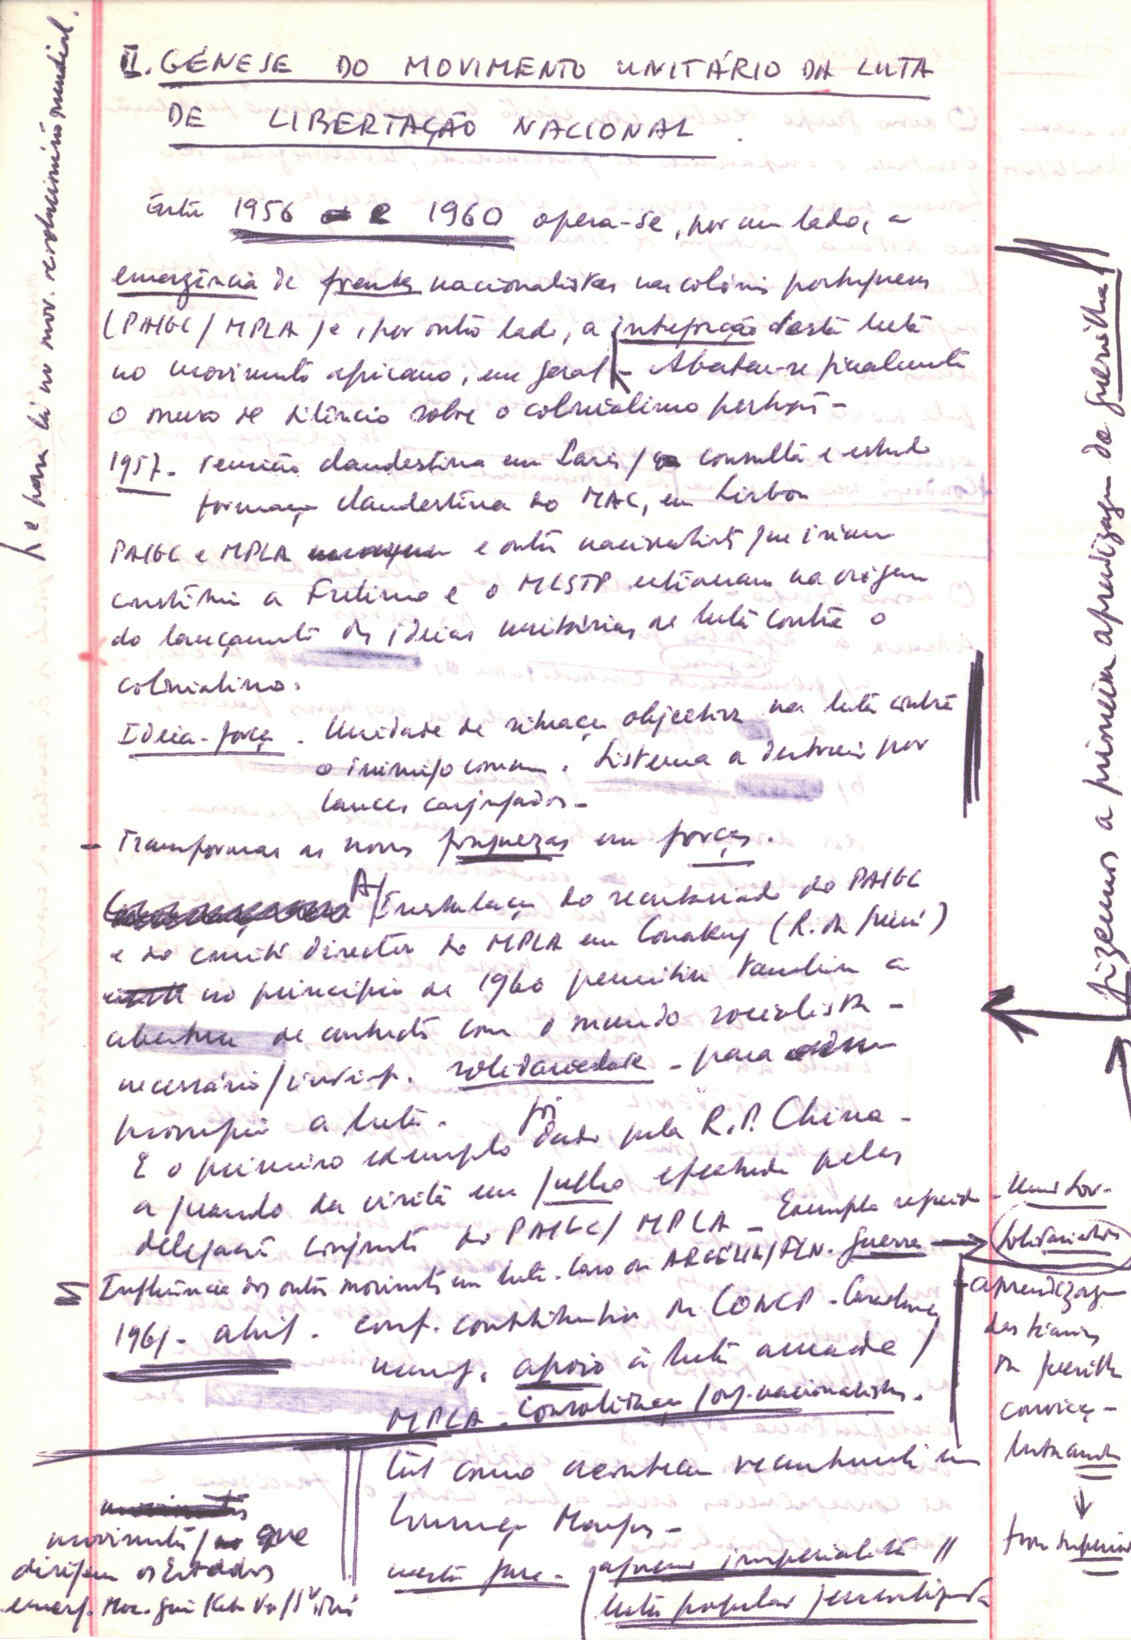 II. GÉNESE DO MOVIMENTO UNITÁRIO DA LUTA
DE LIBERTAÇÃO NACIONAL.
Entre 1956 e 1960 opera-se, por um lado, a
emergência de frentes nacionalistas nas colónias portuguesas
(PAIGC/MPLA) e, por outro lado, a integração desta luta
no movimento africano, em geral - Abateu-se finalmente
o muro de silêncio sobre o colonialismo português -
1957 - reunião clandestina em Paris / consulta e estudo
formação clandestina do MAC, em Lisboa
PAIGC e MPLA e outros nacionalistas que iriam
constituir a Frelimo e o MLSTP estiveram na origem
do lançamento das ideias unitárias de luta contra o
colonialismo.
Ideia-força. Unidade de situação objectiva na luta contra
o inimigo comum. Sistema a destruir por
lances conjugados -
- Transformar as nossas fraquezas em forças.
A/ Instalação do secretariado do PAIGC
e do comité director do MPLA em Conakry (R. da Guiné)
no princípio de 1960 permitiu também a
abertura de contactos com o mundo socialista -
necessária/ . solidariedade - para
prosseguir a luta.
E o primeiro exemplo foi dado pela R.P. China -
aquando da visita em julho efectuada pelas
delegações conjuntas do PAIGC/MPLA - Exemplo seguido
Influência dos outros movimentos em luta. Caso da ARGÉLIA/FLN. guerra
1961 - abril. conf. constitutiva da CONCP - Casablanca
apoio à luta armada /
MPLA - Consolidação / org. nacionalistas.
tal como aconteceu recentemente em
Lourenço Marques -
nesta fase - agressão imperialista //
luta popular generalizada
movimentos / que
dirigem os Estados
emerg. Moç. Guiné Cabo Verde/S. Tomé
e para lá no mov. revolucionário mundial.
fizemos a primeira aprendizagem da guerrilha
Solidariedade
- aprendizagem
das técnicas
da guerrilha